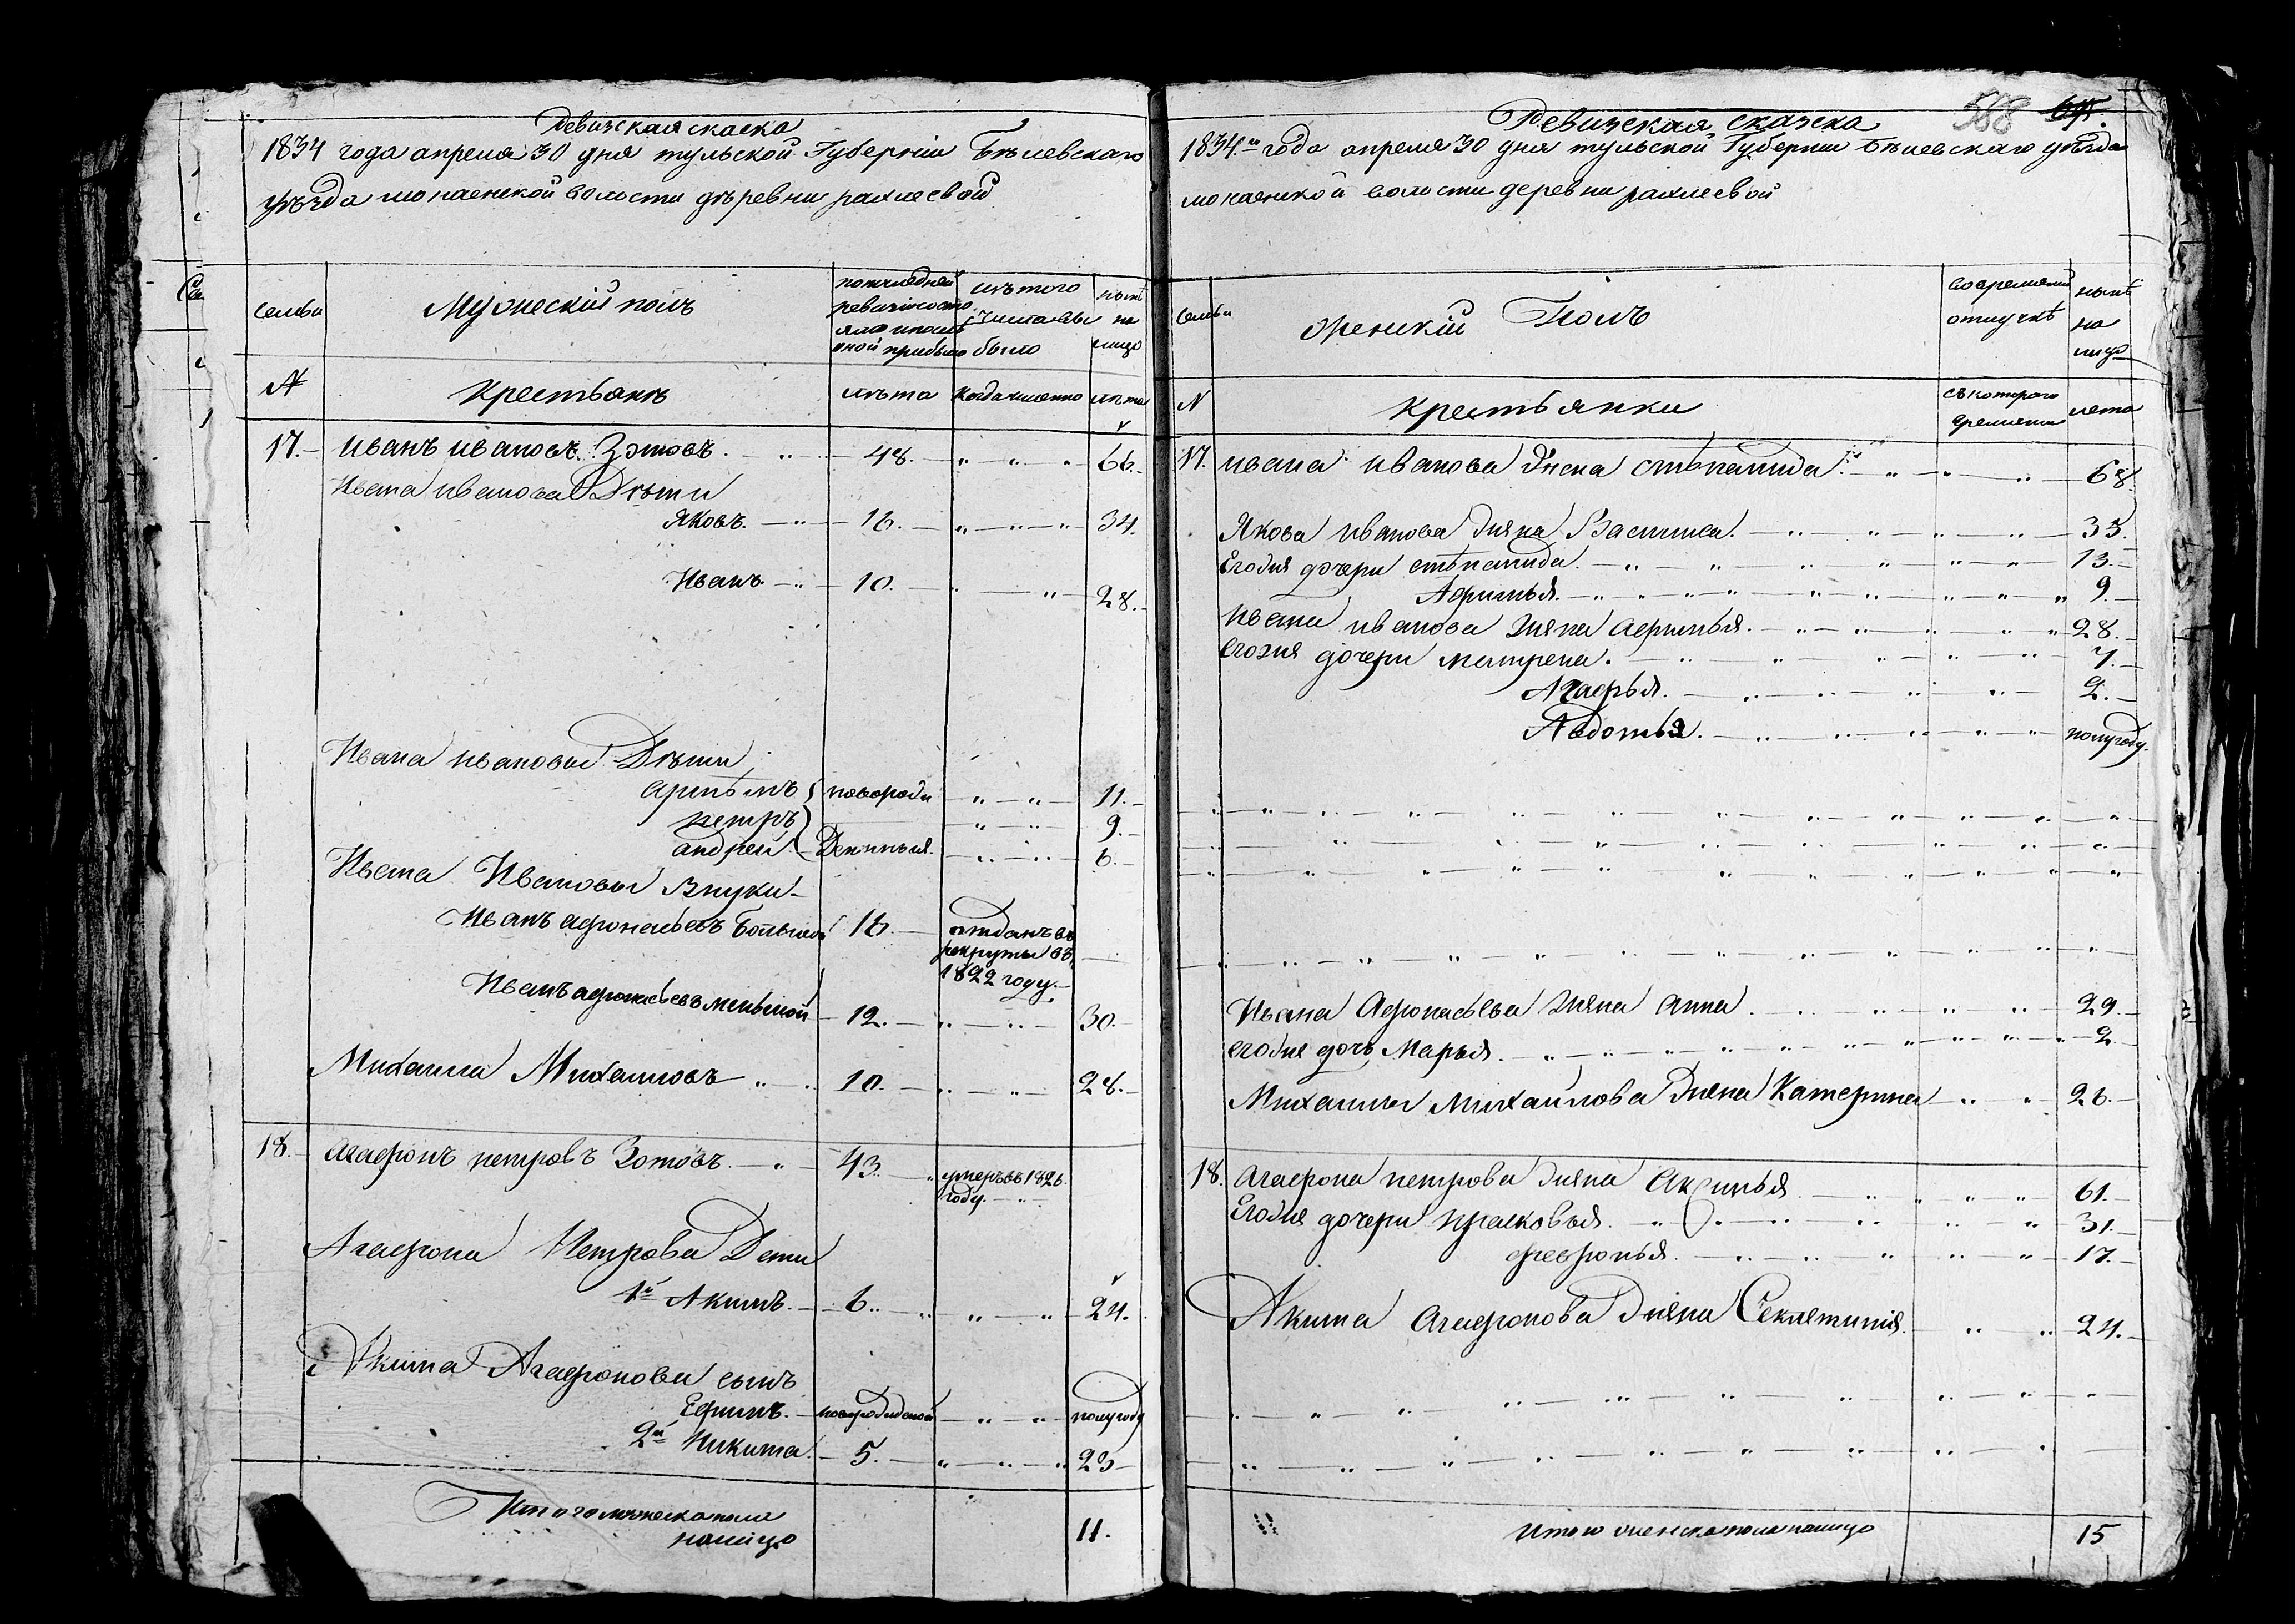 Ревизская скаска
1834 года апреля 30 дня тульской Губерніи Бѣлевскаго
уѣзда мокаенской волости дѣревни рахлеевой
семьи
Мужескій полъ
по последней
ревизіи состо
яло и после
оной прибыло
изъ того
числа вы
было
нынѣ
на
лицо
N
Крестьянѣ
лѣта
когда именно
лѣта
17. Иванъ ивановъ Зотовъ. 48. 66.
Ивана иванова Дѣти
Яковъ. 16. 34.
Иванъ 10. 28.
Ивана ивановы Дѣти
артѣмъ новорож 11.
петръ 9.
андрей Деннныя. 6.
Ивана Ивановы Внуки
Иванъ афонасьевъ большой 16. отданъ въ
рекруты въ
1822 году.
Иванъ афонасьевъ меньшой 12. 30.
Михаила Михаиловъ 10. 28.
18. Агафонъ петровъ Зотовъ. 43. умеръ въ 1826
году.
Агафона Петрова Дети
1й Акимъ. 6. 24.
Акима Агафонова сынъ
Ефимъ. новорожденой полугоду
2й Никита. 5. 23
Итого мужеска пола
налицо 11.
588
Ревизская сказска
1834.го года апреля 30 дня тульской Губернии Бѣлевскаго уѣзда
мокаенской волости деревни рахлеевой
семьи
женскій Полъ
во временной
отлучкѣ
нынѣ
на
лицо
N
крестьянки
съ котораго
времени
лета
17. ивана иванова жена стѣпанида. 68.
Якова иванова жена Василиса. 35.
Его же дочери стѣпанида. 13.
Афимья. 9.
Ивана иванова жена афимья. 28.
его же дочери матрена. 7.
Агафья. 2.
Авдотья. полугоду.
Ивана Афонасьева жена анна. 29.
его же дочь Марья. 2
Михаилы михайлова жена Катерина 26.
18. агафона петрова жена Аксинья 61.
Его же дочери прасковья. 31.
февронья. 17.
Акима агафонова жена Секлетинія. 24.
Итого женска пола налицо 15